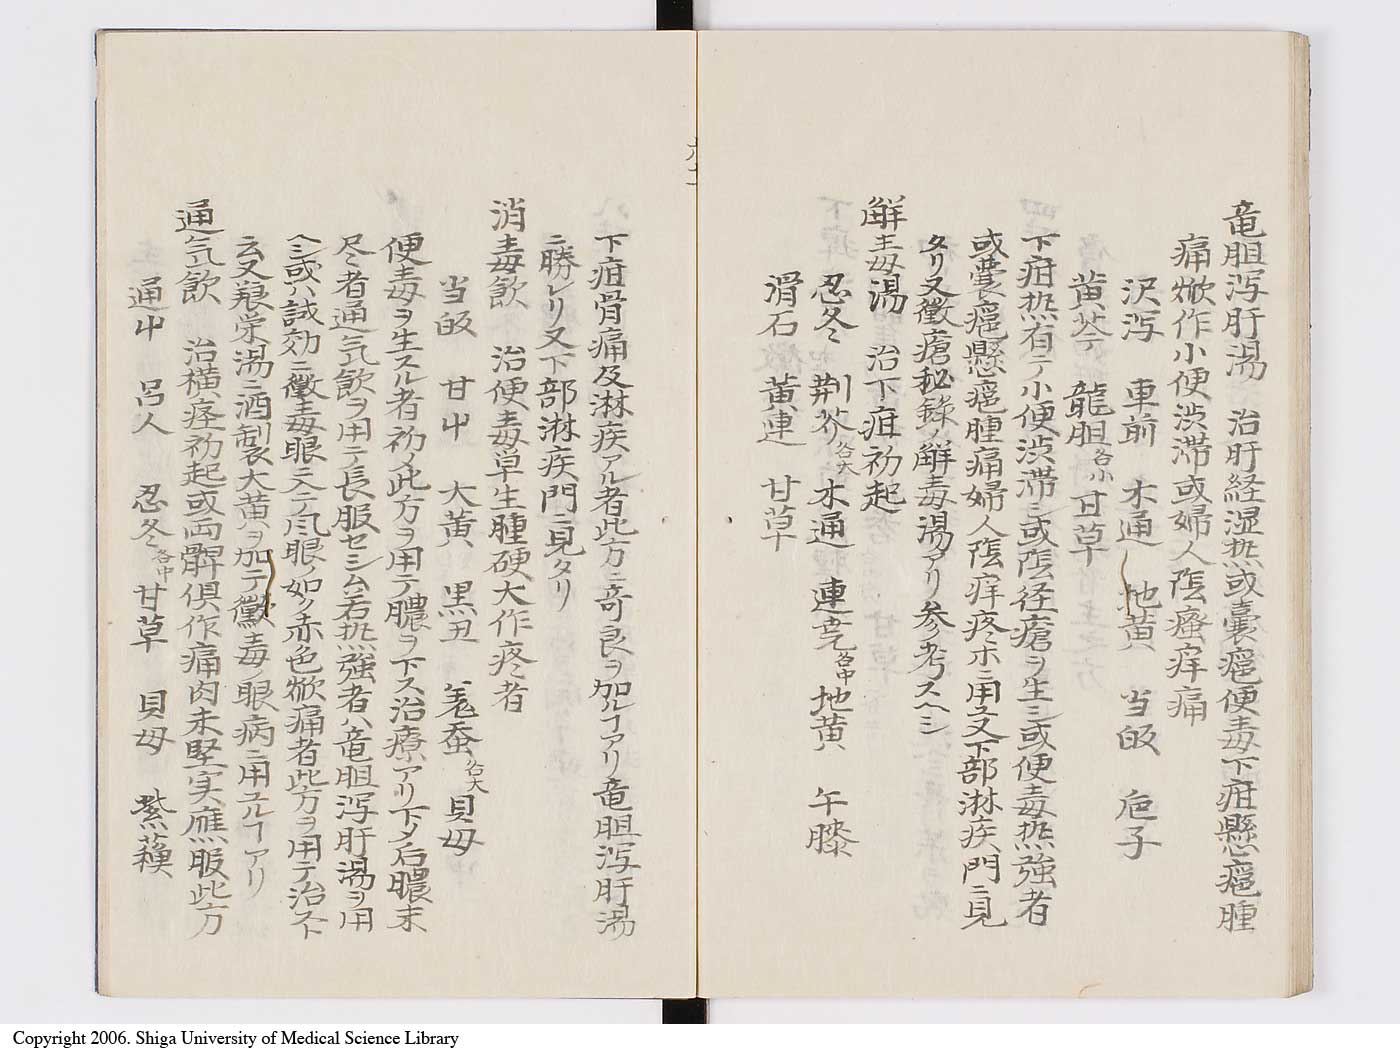 竜胆泻肝湯 治肝経湿热或嚢癰便毒下疳懸癰腫
痛焮作小便渋滞或婦人陰瘙痒痛
沢泻 車前 木通 地黄 当皈 巵子
黄芩 龍胆各小 甘草
下疳热有テ小便渋滞シ或陰径瘡ヲ生シ或便毒热強者
或嚢癰懸癰腫痛婦人陰痒疼ホニ用又下部淋疾門ニ見
タリ又黴瘡秘錄ノ解毒湯アリ参考スヘシ
解毒湯 治下疳初起
忍冬 荆芥各大 木通 連尭各中 地黄 午膝
滑石 黄連 甘草
下疳骨痛及淋疾アル者此方ニ奇良ヲ加ルヿアリ竜胆泻肝湯
ニ勝レリ又下部淋疾門ニ見タリ
消毒飲 治便毒草生腫硬大作疼者
当皈 甘中 大黄 黒丑 羗蚕各大 貝母
便毒ヲ生スル者初メ此方ヲ用テ膿ヲ下ス治療アリ下タ后膿末
尽者通气飲ヲ用テ長服セシム若热強者ハ竜胆泻肝湯ヲ用
ヘシ或ハ試効ニ黴毒眼ニ入テ风眼ノ如ク赤色焮痛者此方ヲ用テ治スト
云又狼栄湯ニ酒製大黄ヲ加テ黴毒ノ眼病ニ用ユルヿアリ
通气飲 治横痃初起或両髀俱作痛肉未堅実應服此方
通中 呂人 忍冬各中 甘草 貝母 紫蘓
Copyright 2006. Shiga University of Medical Science Library